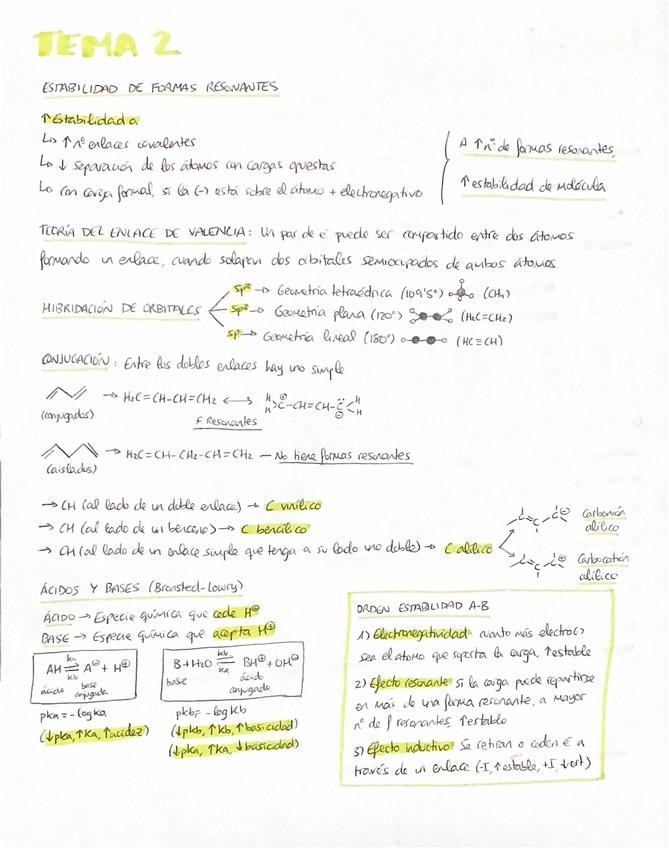 TEMA 2
ESTABILIDAD DE FORMAS RESONANTES
↑Estabilidad a
↳ ↑ nº enlaces covalentes
↳ ↓ separación de los átomos con cargas opuestas
↳ con carga formal, si la (-) está sobre el átomo + electronegativo
A ↑ nº de formas resonantes,
↑ estabilidad de molécula
TEORÍA DEL ENLACE DE VALENCIA: Un par de e⁻ puede ser compartido entre dos átomos
formando un enlace, cuando solapan dos orbitales semiocupados de ambos átomos
HIBRIDACIÓN DE ORBITALES
sp³ → Geometría tetraédrica (109'5°) (CH₄)
sp² → Geometría plana (120°) (H₂C=CH₂)
sp → Geometría lineal (180°) (HC≡CH)
CONJUGACIÓN: Entre los dobles enlaces hay uno simple
(conjugados) → H₂C=CH-CH=CH₂ ↔ H H C⊕-CH=CH-C⊖ H H
F. Resonantes
(aislados) → H₂C=CH-CH₂-CH=CH₂ — No tiene formas resonantes
→ CH (al lado de un doble enlace) → C vinílico
→ CH (al lado de un benceno) → C bencílico
→ CH (al lado de un enlace simple que tenga a su lado uno doble) → C alílico
C=C-C⊖ Carbanión
alílico
C=C-C⊕ Carbocatión
alílico
ÁCIDOS Y BASES (Bronsted-Lowry)
ÁCIDO → Especie química que cede H⊕
BASE → Especie química que acepta H⊕
AH ⇌ A⊖ + H⊕
ka
ácido base
conjugada
pka = -log ka
(↓pka, ↑Ka, ↑acidez)
B + H₂O ⇌ BH⊕ + OH⊖
kb
ka
base ácido
conjugado
pkb = -log Kb
(↓pkb, ↑Kb, ↑basicidad)
(↓pka, ↑Ka, ↓basicidad)
ORDEN ESTABILIDAD A-B
1) Electronegatividad: cuanto más electro(-)
sea el átomo que soporta la carga, ↑estable
2) Efecto resonante: si la carga puede repartirse
en más de una forma resonante, a mayor
nº de f resonantes ↑estable
3) Efecto inductivo: Se retiran o ceden e⁻ a
través de un enlace (-I, ↑estable, +I, ↓est)